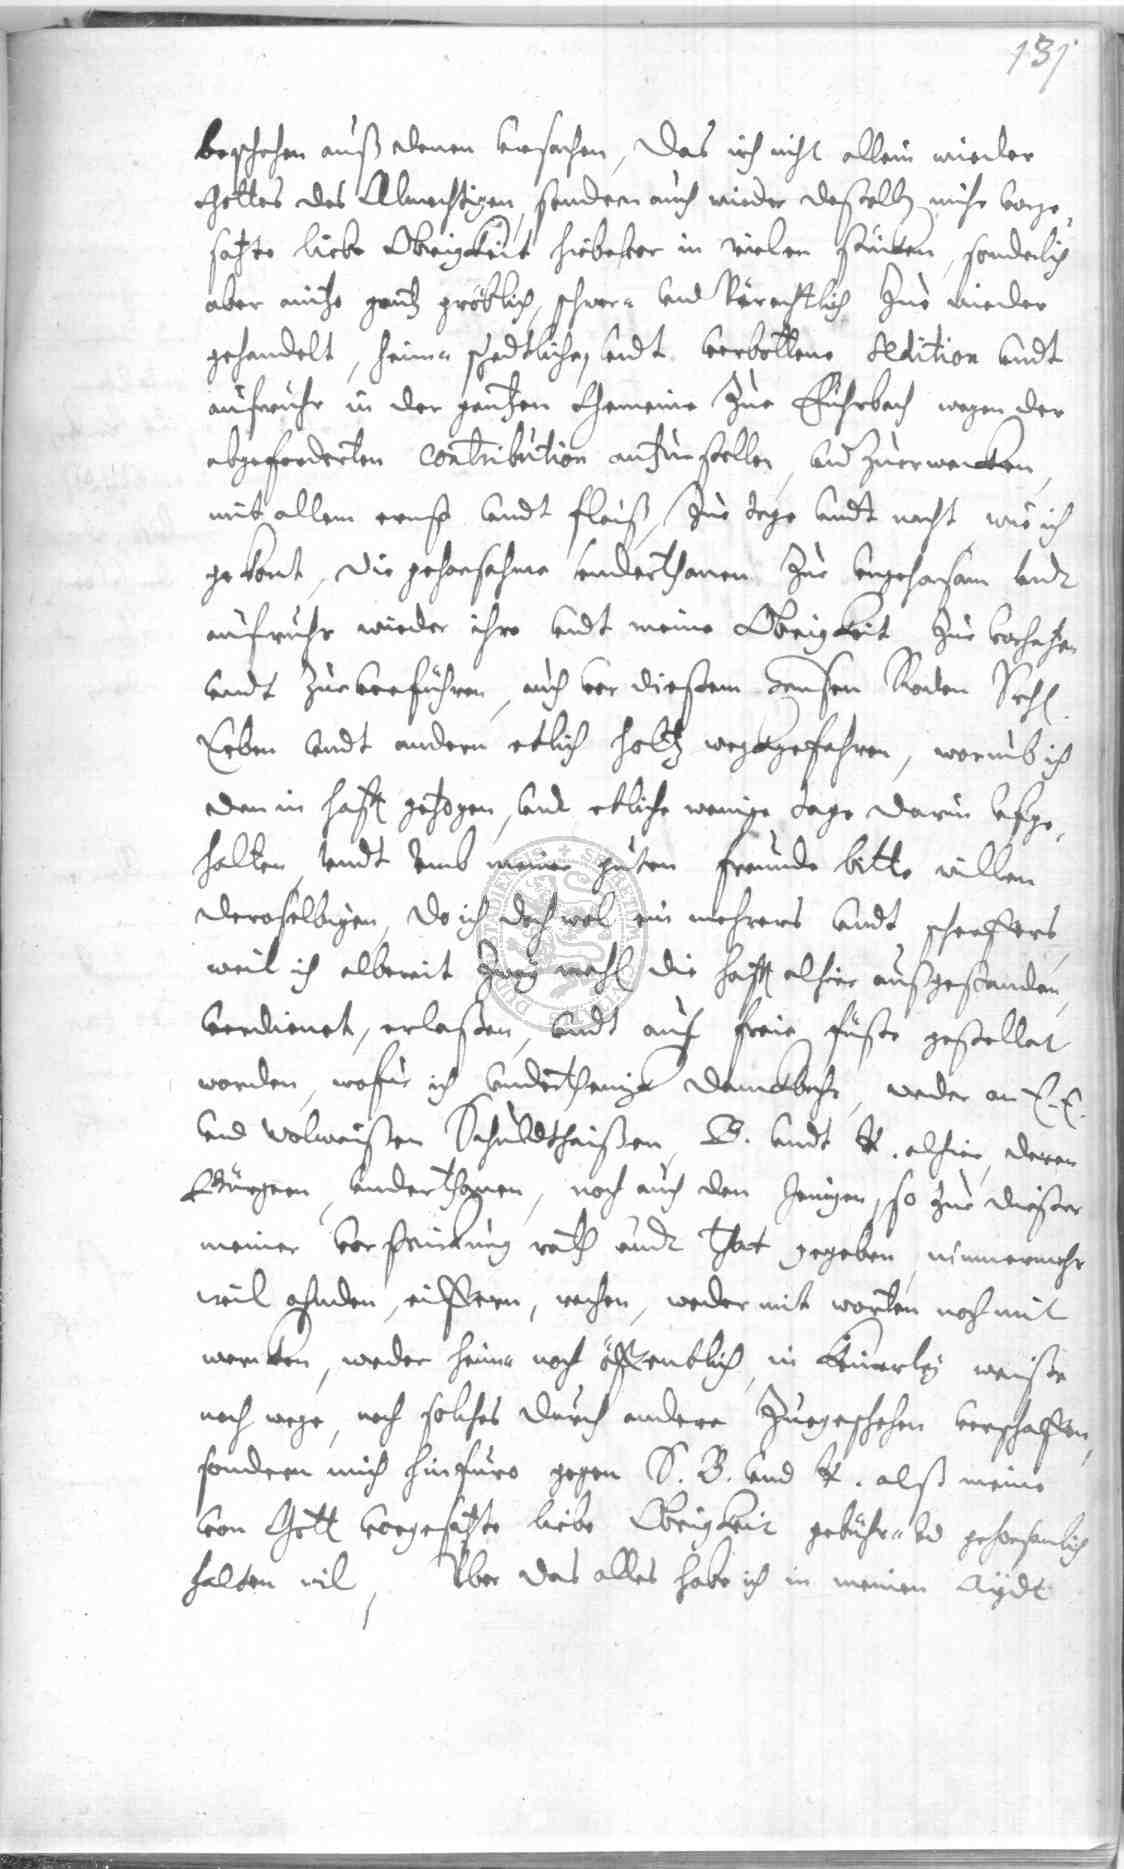 131
beschehen auß denen vrsachen, Das ich nicht allein wieder
Gottes des Allmechtigen, sondern auch wieder deßelb mihr vorge-
satzte liebe Obrigkeit hiebevor in vielen stücken, sonderlich
aber anitzo gantz gröblich, schwer- vnd Värechtlich Zue wieder
gehandelt, heim- schedtliche, vndt verbottene Sedition vndt
aufruhr in der gantzen Gemeine Zue Fuhrbach wegen der
abgeforderten Contribution antzustellen, vnd Zuerwecken,
mit allem ernst vndt fleiß, Zue tage vndt nacht, wie ich
gekont, die gehorsahme vnderthanen Zue vngehorsam vndt
aufruhr wieder ihre vndt meine Obrigkeit Zue verhetzen
vndt Zueverführen, auch vor dießem Hansen Roden Sehl.
Erben vndt andern etlich holtz weggefahren, worumb ich
dan in hafft getzogen, vnd etliche wenige tage darin ufge-
halten, vndt vmb meiner guten freunde bitte willen
deroselbigen, do ich doch wol ein mehrers vndt scherffers,
weil ich albereit Zwey mahl die hafft alhier außgestanden,
verdienet, erlaßen, vndt auf freie füße gestellet
worden, wofür ich vnderthenig danckbahr, weder an E. E.
vnd Wolweißen Schuldtheißen, B. vndt R. alhier, deren
Bürgern, vnderthanen, noch auch den Jenigen, so zue dießer
meiner verstrickung rath vndt that gegeben, nimmermehr
will ahnden, eiffern, rechen, weder mit worten noch mit
wercken, weder heim- noch öffentlich, in keinerley weiße
noch wege, noch solches durch andere Zuegeschehen verschaffen,
sondern mich hinfüro gegen S. B. vnd R. alß meine
von Gott vorgesatzte liebe Obrigkeit gebühr- vnd gehorsamlich
halten wil, Vber das alles habe ich in meinen Aydt